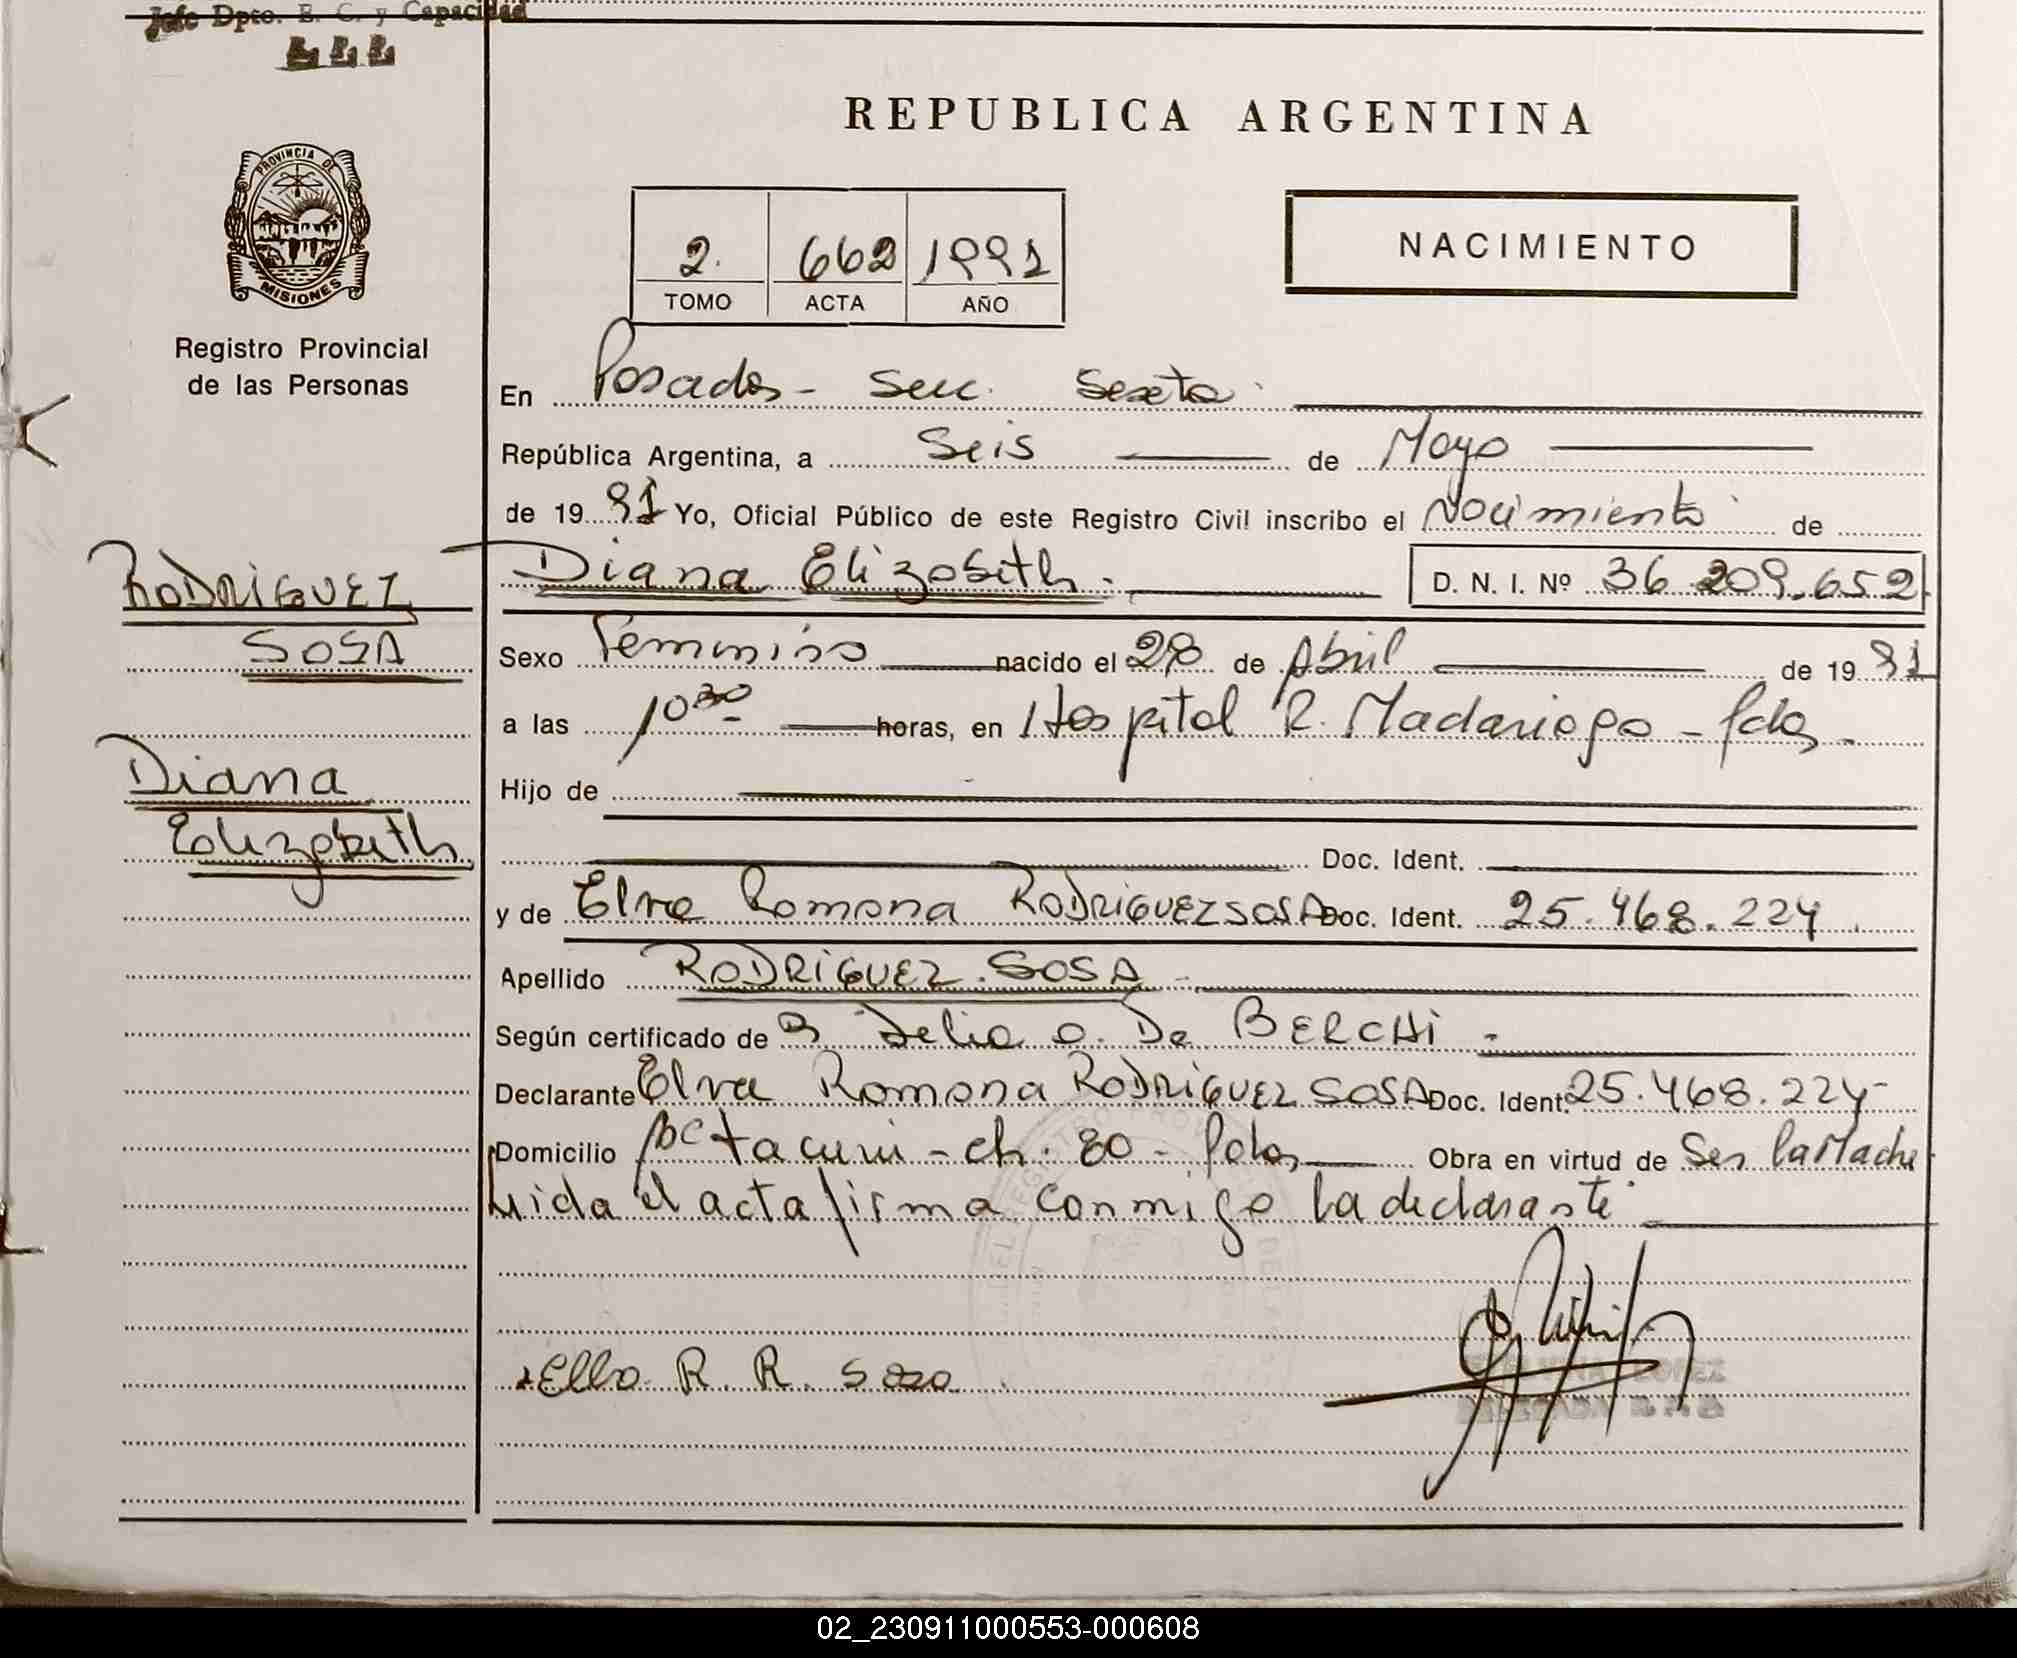 Jefe Dpto. E. C. y Capacidad
REPUBLICA ARGENTINA
PROVINCIA DE
MISIONES
Registro Provincial
de las Personas
NACIMIENTO
2. 662 1991
TOMO ACTA AÑO
En Posadas - Secc. Sexta.
República Argentina, a Seis de Mayo
de 19 91 Yo, Oficial Público de este Registro Civil inscribo el Nacimiento de
RODRIGUEZ
SOSA
Diana
Elizabeth
Diana Elizabeth. D. N. I. Nº 36.209.652
Sexo Femenino nacido el 28 de Abril de 19 91
a las 10 30 horas, en Hospital R. Madariaga - Pdas.
Hijo de
Doc. Ident.
y de Elva Ramona RODRIGUEZ SOSA Doc. Ident. 25.468.224
Apellido RODRIGUEZ. SOSA -
Según certificado de Delia O. De BERCHI -
Declarante Elva Ramona RODRIGUEZ SOSA Doc. Ident. 25.468.224
Domicilio Tacuru - ch. 80 - Pdas Obra en virtud de Ser la Madre
Leida el acta firma conmigo la declarante
R. R. Sosa
02_230911000553-000608